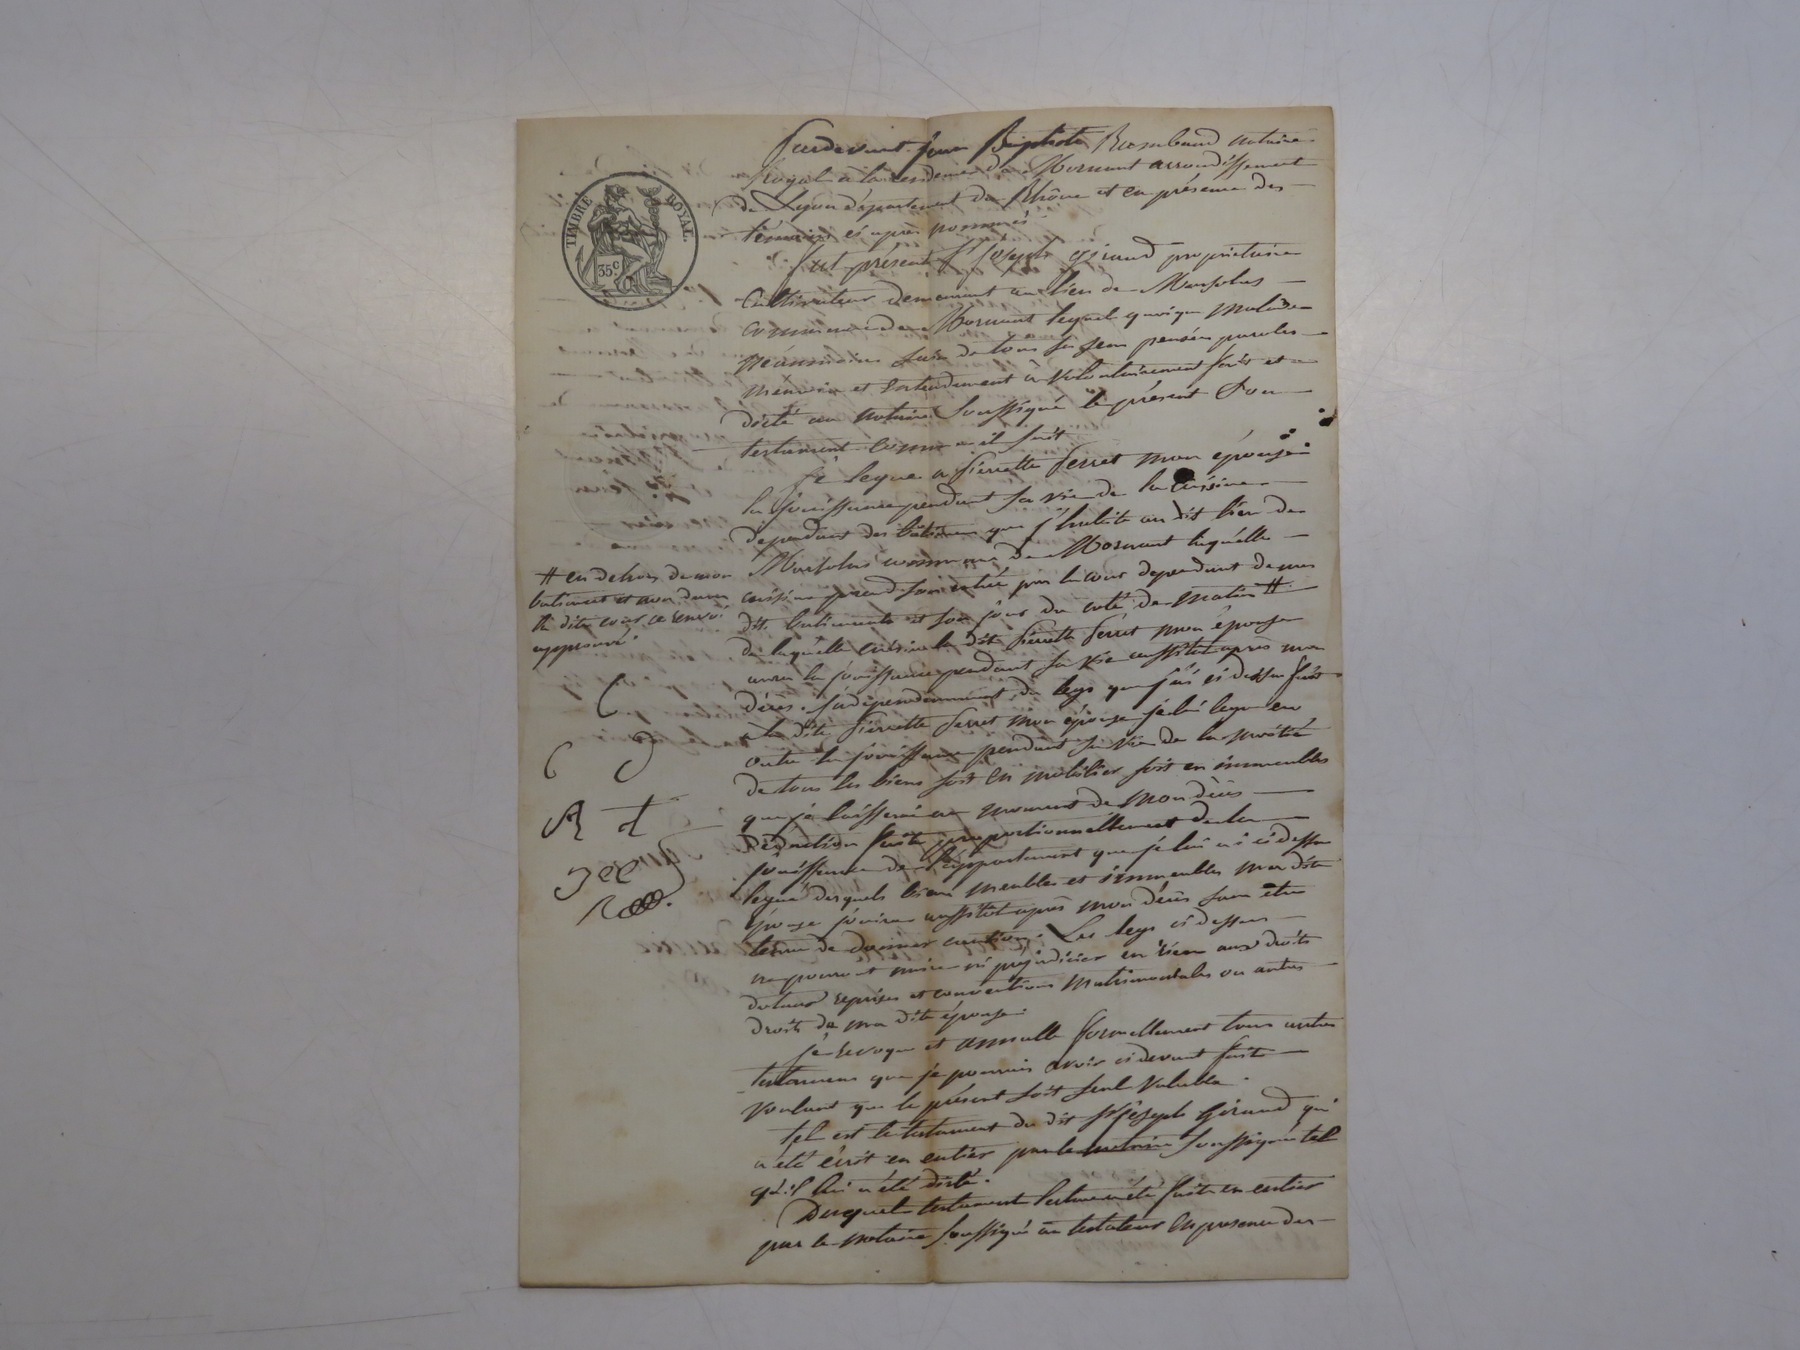 TIMBRE ROYAL.
35c
Pardevant Jean Baptiste notaire
royal à la résidence de Mornant arrondissement
de Lyon département du Rhône et en présence des
témoins ci après nommés
fut présent Sr Joseph Giraud propriétaire
Cultivateur demeurant au lieu de
commune de Mornant lequel quoique malade
néanmoins sain de tous ses sens pensée parole
mémoire et entendement a volontairement fait et
dicté au notaire soussigné le présent Son
testament comme il suit
Je legue a Pierrette Ferret mon épouse
la jouissance pendant sa vie de la cuisine
dependant des bâtimens que j'habite au dit lieu de
commune de Mornant laquelle
cuisine prend son entrée par la cour dependant de mes
dits batiments et son jour du coté de matin #
# en dehors de mon
batiment et non dans
la dite cour ce renvoi
approuvé
de laquelle cuisine la dite Pierrette Ferret mon épouse
aura la jouissance pendant sa vie aussitot après mon
décès. Indépendemment du legs que j'ai ci dessus fait
a la dite Pierrette Ferret mon épouse je lui legue en
outre la jouissance pendant sa vie de la moitié
de tous les biens soit en mobilier soit en immeubles
que je laisserai au moment de mon décès
Réduction faite proportionnellement de la
jouissance de l'appartement que je lui ai ci dessus
legué desquels biens meubles et immeubles ma dite
épouse jouira aussitot après mon décès sans être
tenue de donner caution. Les legs ci dessus
ne pourront nuire ni préjudicier en rien aux droits
reprises et conventions matrimoniales ou autres
droits de ma dite épouse.
Je revoque et annulle formellement tous autres
testamens que je pourrais avoir ci devant fait
voulant que le présent soit seul valable.
Tel est le testament du dit Sr Joseph Giraud qui
a été écrit en entier par le notaire soussigné tel
qu'il lui a été dicté.
Duquel testament lecture a été faite en entier
par le notaire soussigné au testateur en presence des